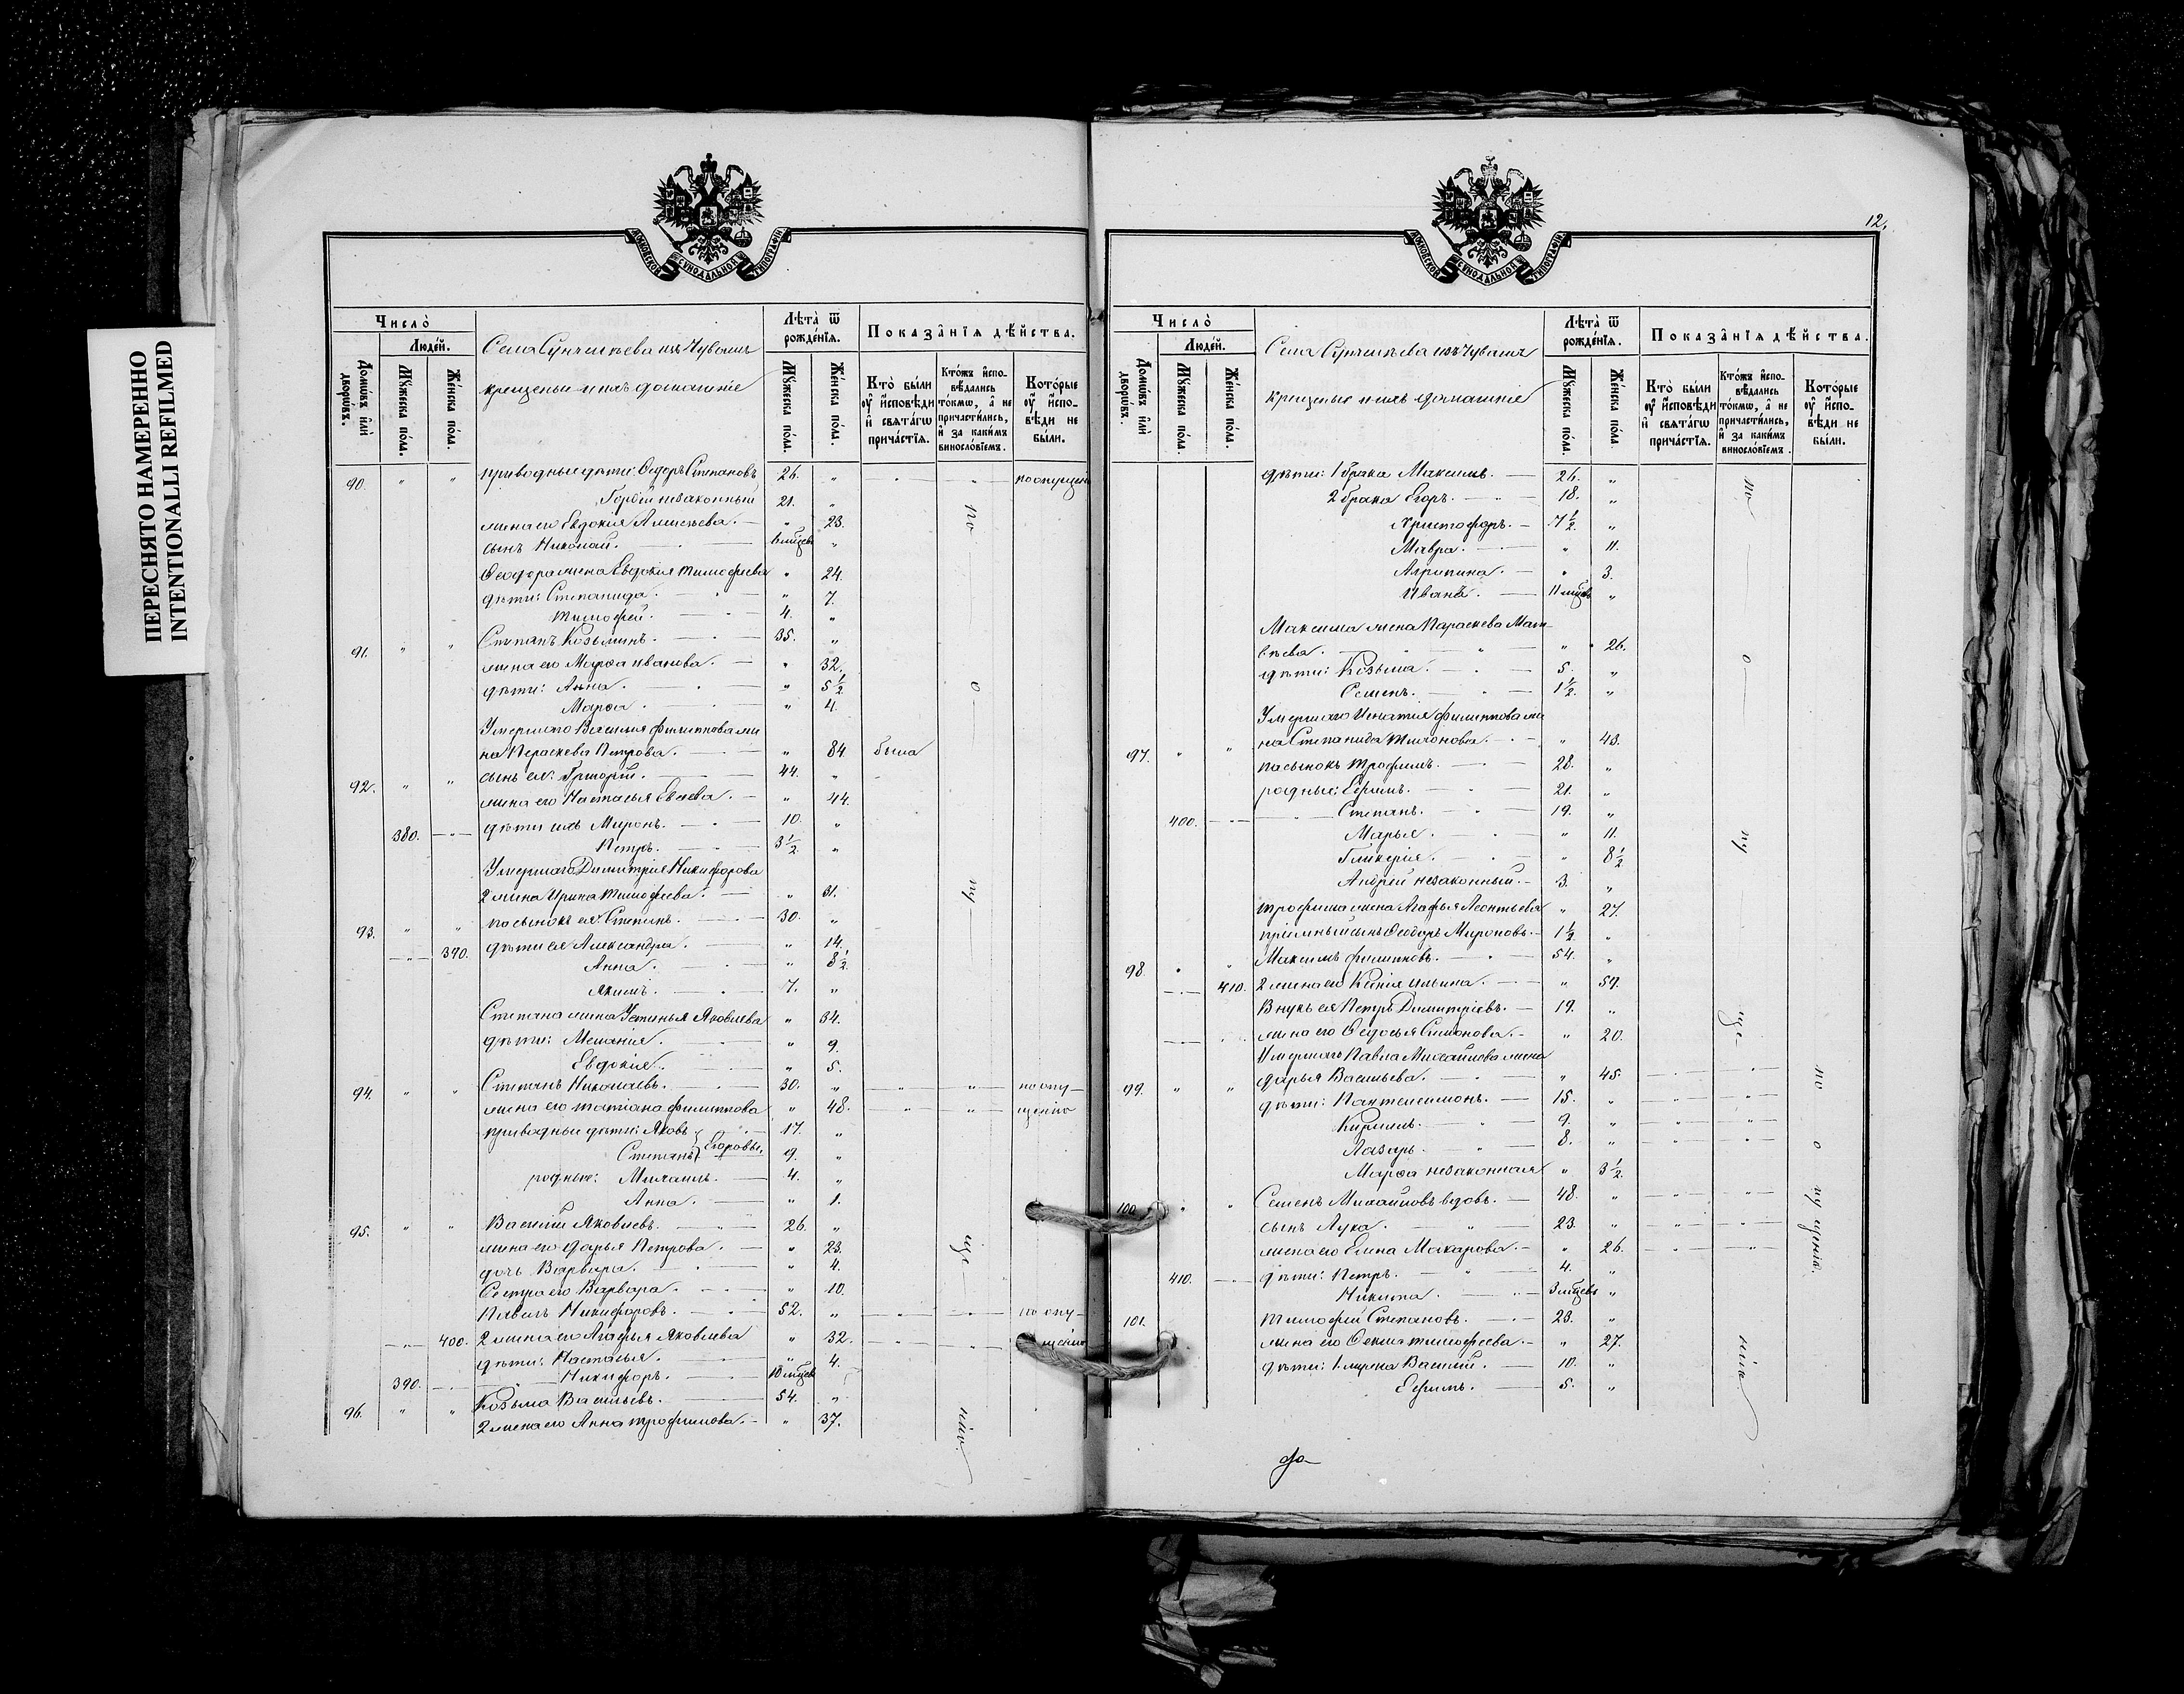 ПЕРЕСНЯТО НАМЕРЕННО
INTENTIONALLI REFILMED
МОСКОВСКОЙ СѴНОДАЛЬНОЙ ТИПОГРАФІИ
Число̀
Люде́й.
Домѡ́въ и҆лѝ дворѡ́въ.
Мꙋ́жеска по́ла.
Же́нска по́ла.
Села Сунчелѣева изъ Чувашъ
крещеные и ихъ домашніе
Лѣ́та ѿ рожде́нїѧ.
Мꙋ́жеска по́ла.
Же́нска по́ла.
Показа̑нїѧ дѣ́йства.
Кто̀ бы́ли оу҆ и҆́сповѣди и҆ свѧта́гѡ прича́стїѧ.
Кто́жъ и҆спо-вѣ́дались то́кмѡ, а҆ не причасти́лись, и҆ за каки́мъ винословїемъ.
Кото́рые оу҆ и҆спо-вѣди не бы́ли.
90. " " приводные дѣти: Ѳедоръ Степановъ 26. " " " по опущенію
Гордѣй незаконный 21. "
жена его Евдокія Алексѣева. " 23.
сынъ Николай. 6 мѣсяцевъ "
Ѳеодора жена Евдокія Тимофеева " 24.
дѣти: Степанида. " 7.
Тимофей. 4. "
91. " " Степанъ Козьминъ. 35. "
жена его Марѳа Иванова. " 32.
дѣти: Анна. " 5½
Марѳа. " 4.
Умершаго Василія Филиппова же
на Параскева Петрова. " 84. была
92. " " сынъ ея: Григорій. 44. "
жена его Настасья Евсеева. " 44.
380. дѣти ихъ Миронъ. 10. "
Петръ. 3½. "
Умершаго Димитрія Никифорова
2 жена Ирина Тимофеева. " 31.
93. " " пасынокъ ея Степанъ. 30. "
390. дѣти ея Александра. " 14.
Анна. " 8½
Якимъ. 7. "
Степана жена Устинья Яковлева " 34.
дѣти: Меланія. " 9.
Евдокія. " 5.
94. " " Степанъ Николаевъ. 30. " " " по опу-
жена его Татіана Филиппова " 48. " " щенію
приводные дѣти: Яковъ 17. "
Степанъ } Егоровы. 9. "
родные: Михаилъ. 4. "
Анна. " 1.
95. " " Василій Яковлевъ. 26. "
жена его Дарья Петрова. " 23.
дочь Варвара. " 4.
Сестра его Варвара. " 10.
Павелъ Никифоровъ. 52. " по опу-
400. 2 жена его Агафья Яковлева " 32. щенію
дѣти: Настасья. " 4.
390. Никифоръ. 10 мѣсяцевъ
96. " " Козьма Васильевъ. 54. "
2 жена его Анна Трофимова. " 37.
по о пу ще нію.
12.
МОСКОВСКОЙ СѴНОДАЛЬНОЙ ТИПОГРАФІИ
Число̀
Люде́й.
Домѡ́въ и҆лѝ дворѡ́въ.
Мꙋ́жеска по́ла.
Же́нска по́ла.
Села Сунчелѣева изъ Чувашъ
крещеные и ихъ домашніе
Лѣ́та ѿ рожде́нїѧ.
Мꙋ́жеска по́ла.
Же́нска по́ла.
Показа̑нїѧ дѣ́йства.
Кто̀ бы́ли оу҆ и҆́сповѣди и҆ свѧта́гѡ прича́стїѧ.
Кто́жъ и҆спо-вѣ́дались то́кмѡ, а҆ не причасти́лись, и҆ за каки́мъ винословїемъ.
Кото́рые оу҆ и҆спо-вѣди не бы́ли.
дѣти: 1 брака Максимъ. 26. "
2 брака Егоръ. 18. "
Христофоръ. 7½. "
Мавра. " 11.
Агрипина. " 3.
Иванъ. 11 мѣсяцевъ "
Максима жена Параскева Мат-
вѣева. " 26.
дѣти: Козьма. 5. "
Семенъ. 1½. "
Умершаго Игнатія Филиппова же
97. " " на Степанида " 43.
пасынокъ Трофимъ. 28. "
родные: Ефимъ. 21. "
400. Степанъ. 19. "
Марья. " 11.
Гликерія. " 8½
Андрей незаконный. 3. "
Трофима жена Агафья Леонтьева " 27.
пріемный сынъ Ѳедоръ Мироновъ. 1½. "
98. " " Максимъ Филипповъ. 54. "
410. 2 жена его Ксенія Ильина. " 59.
Внукъ ея Петръ Димитріевъ. 19. "
жена его Ѳедосья Симонова. " 20.
Умершаго Павла Михайлова жена
99. " " Дарья Васильева. " 45.
дѣти: Пантелеимонъ. 15. "
Кирилъ. 9. "
Лазарь. 8. "
Марѳа незаконная " 3½
100. " " Семенъ Михайловъ вдовъ. 48. "
сынъ Лука. 23. "
жена его Елена Макарова. " 26.
410. дѣти: Петръ. 4. "
Никита. 3 мѣсяцевъ "
101. Тимофей Степановъ. 23. "
жена его Ѳекла Тимофеева. " 27.
дѣти: Василій. 10. "
Ефимъ. 5. "
по о пу ще нію.
по о пу щенію.